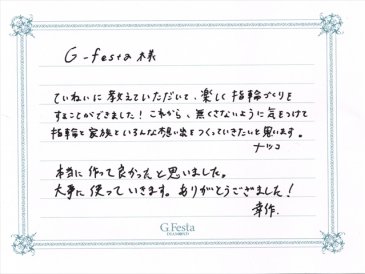 G-festa 様
ていねいに教えていただいて、楽しく指輪づくりを
することができました！これから、無くさないように気をつけて
指輪と家族といろんな想い出をつくっていきたいと思います。
ナツコ
本当に作って良かったと思いました。
大事に使っていきます。ありがとうございました！
幸作.
G.Festa
DIAMOND